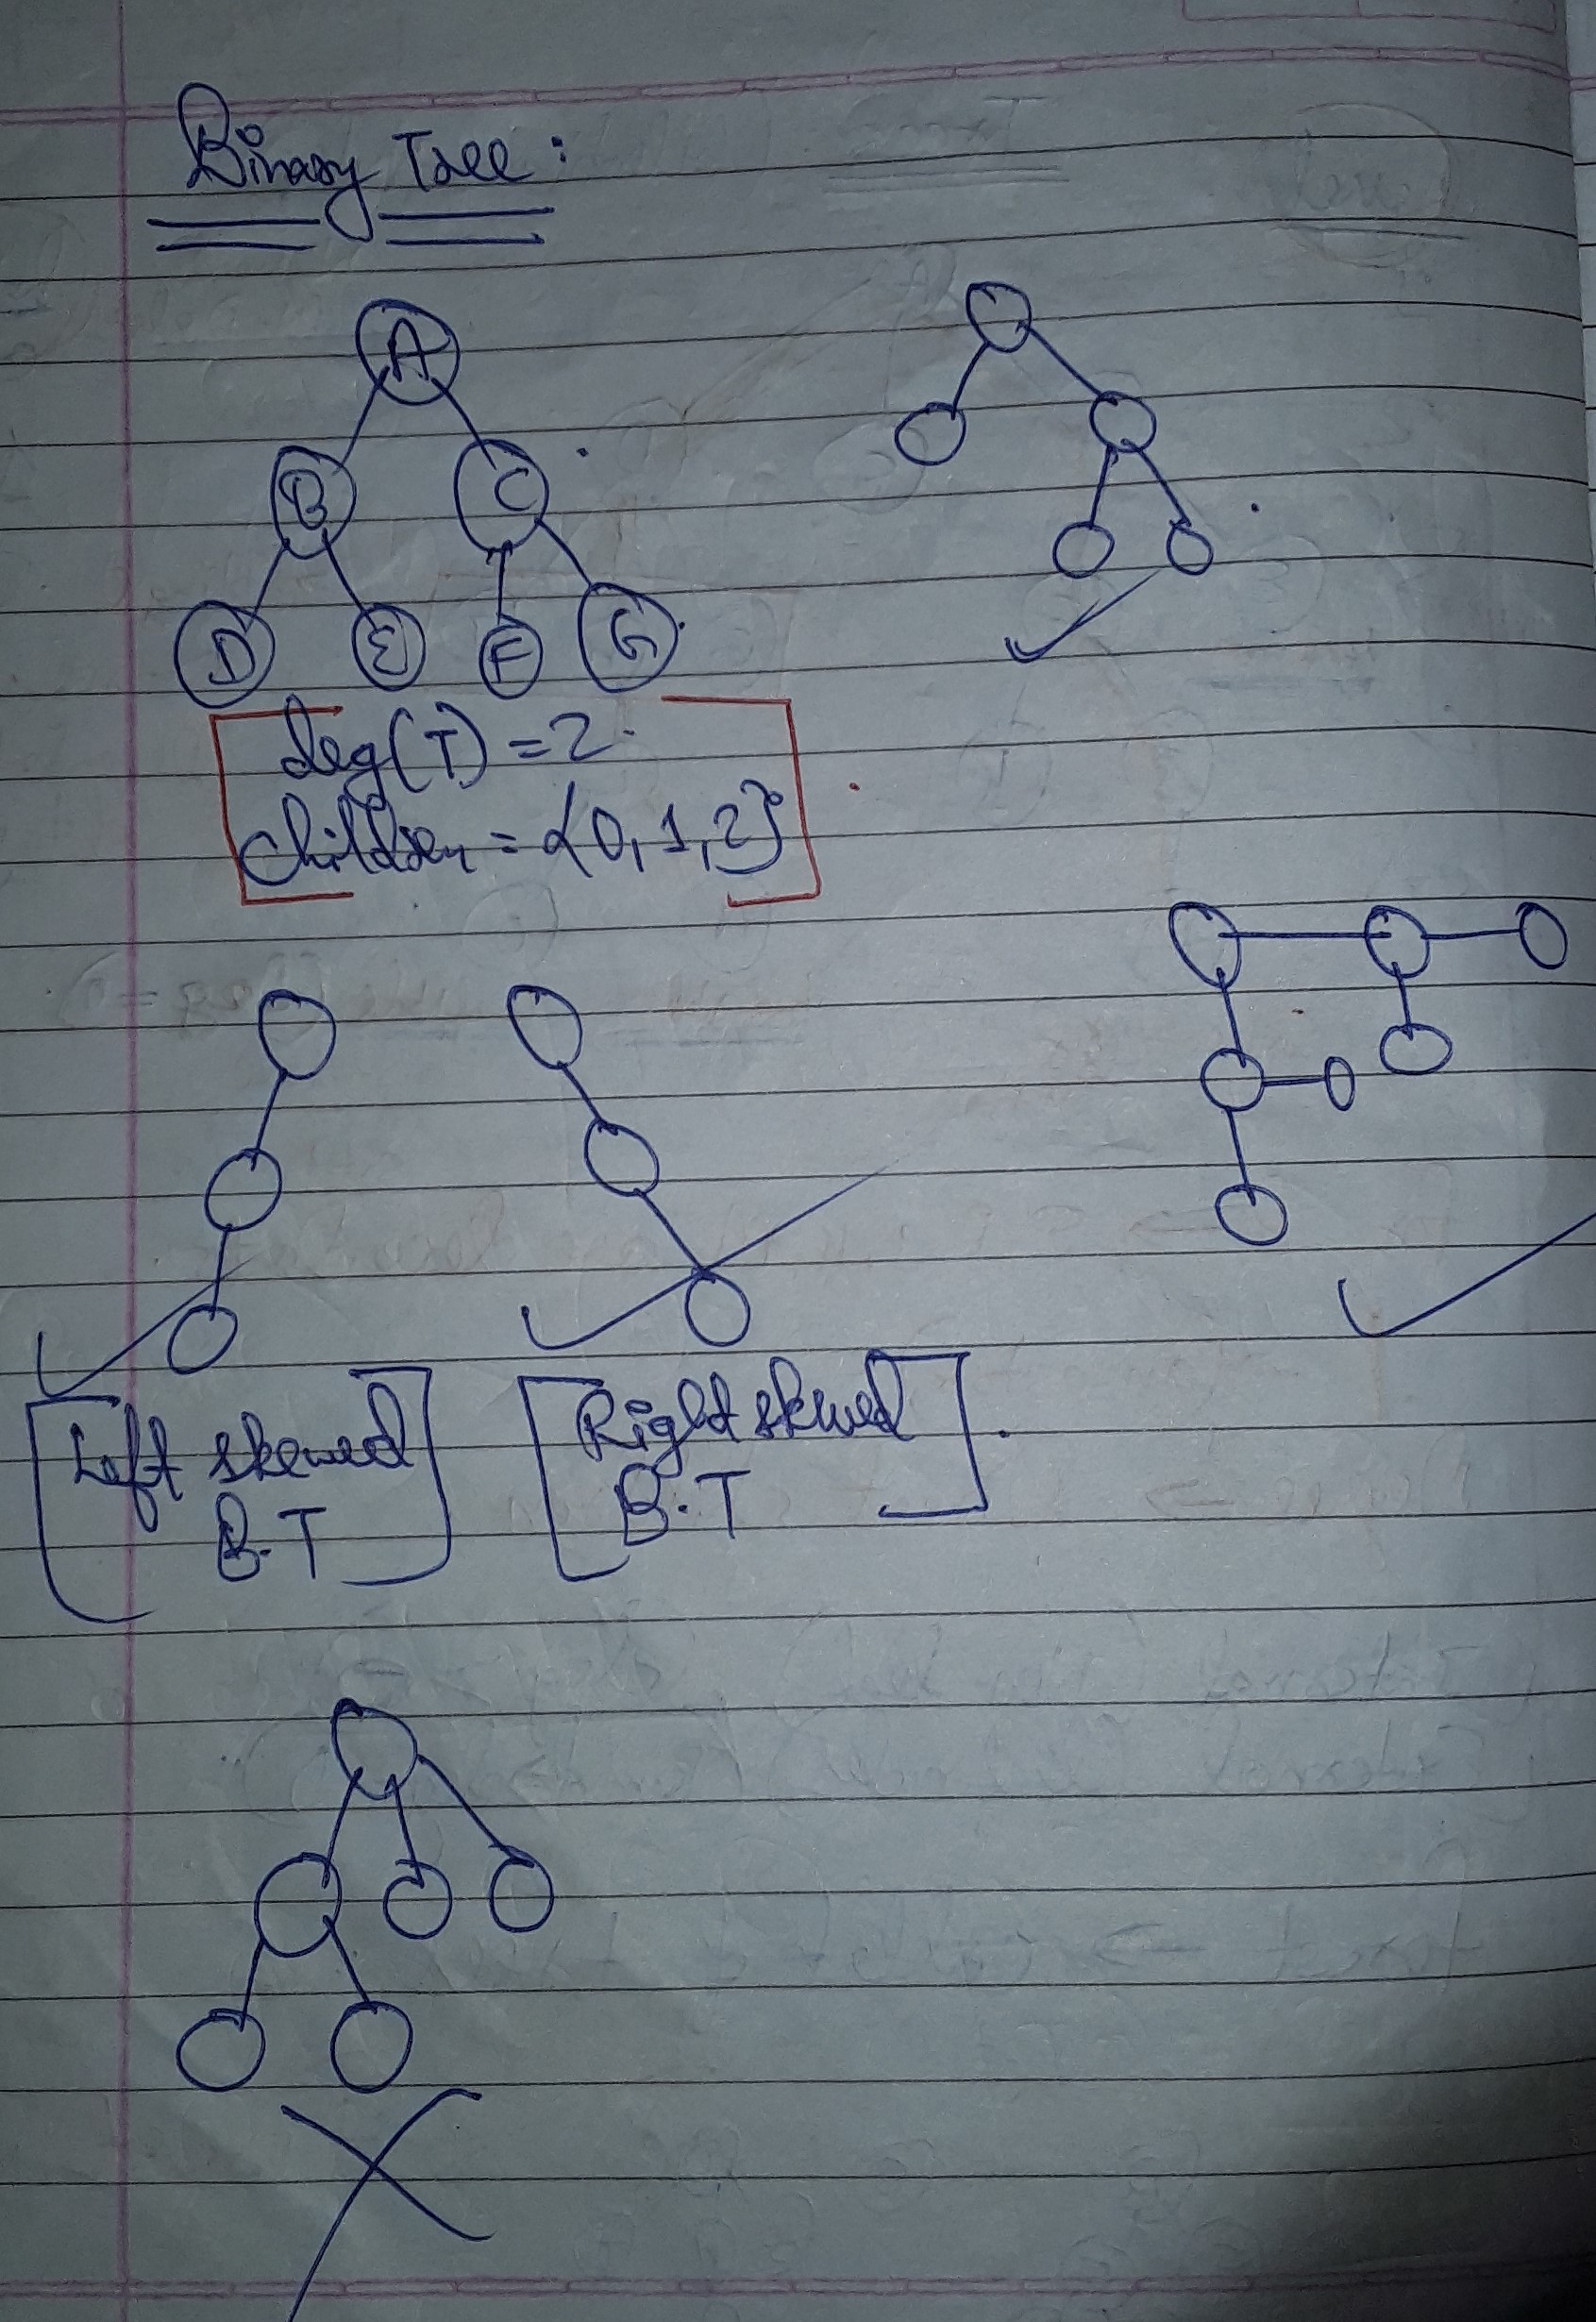 Binary Tree :
A
B C
D E F G
deg(T) = 2.
Children = {0, 1, 2}
Left skewed
B.T
Right skewed
B.T